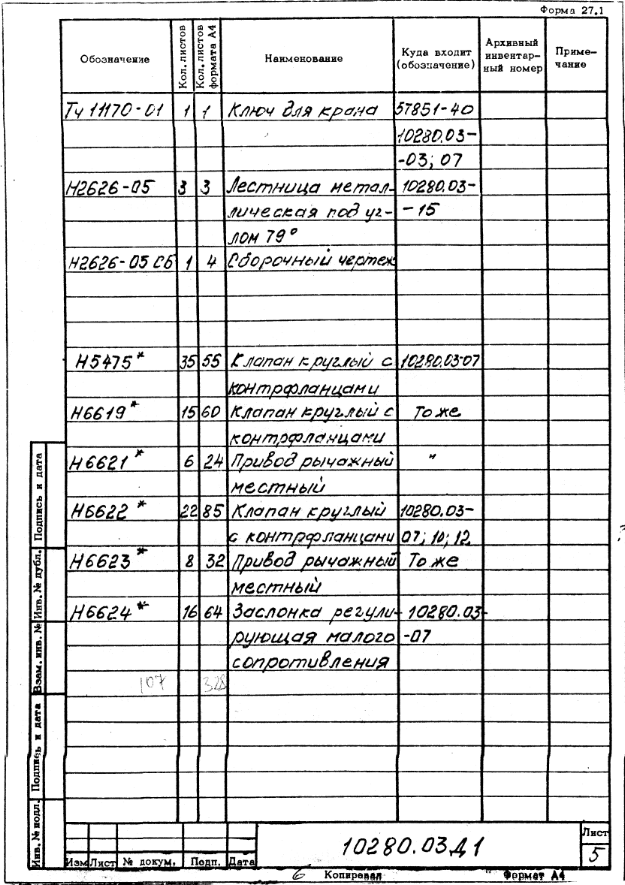 Форма 27.1
Обозначение Кол. листов Кол. листов формата А4 Наименование Куда входит (обозначение) Архивный инвентарный номер Примечание
Тч 11170-01 1 1 Ключ для крана 57851-40
10280.03-
-03; 07
Н2626-05 3 3 Лестница метал- 10280.03-
лическая под уг- -15
лом 79°
Н2626-05 СБ 1 4 Сборочный чертеж
Н5475* 35 55 Клапан круглый с 10280.03-07
контрфланцами
Н6619* 15 60 Клапан круглый с То же
контрфланцами
Н6621* 6 24 Привод рычажный "
местный
Н6622* 22 85 Клапан круглый 10280.03-
с контрфланцами 07; 10; 12
Н6623* 8 32 Привод рычажный То же
местный
Н6624* 16 64 Заслонка регули- 10280.03-
рующая малого -07
сопротивления
107 328
Подпись и дата
Инв. № дубл.
Взам. инв. №
Подпись и дата
Инв. № подл.
10280.03Д1
Лист
5
Изм Лист № докум. Подп. Дата
6 Копировал Формат А4